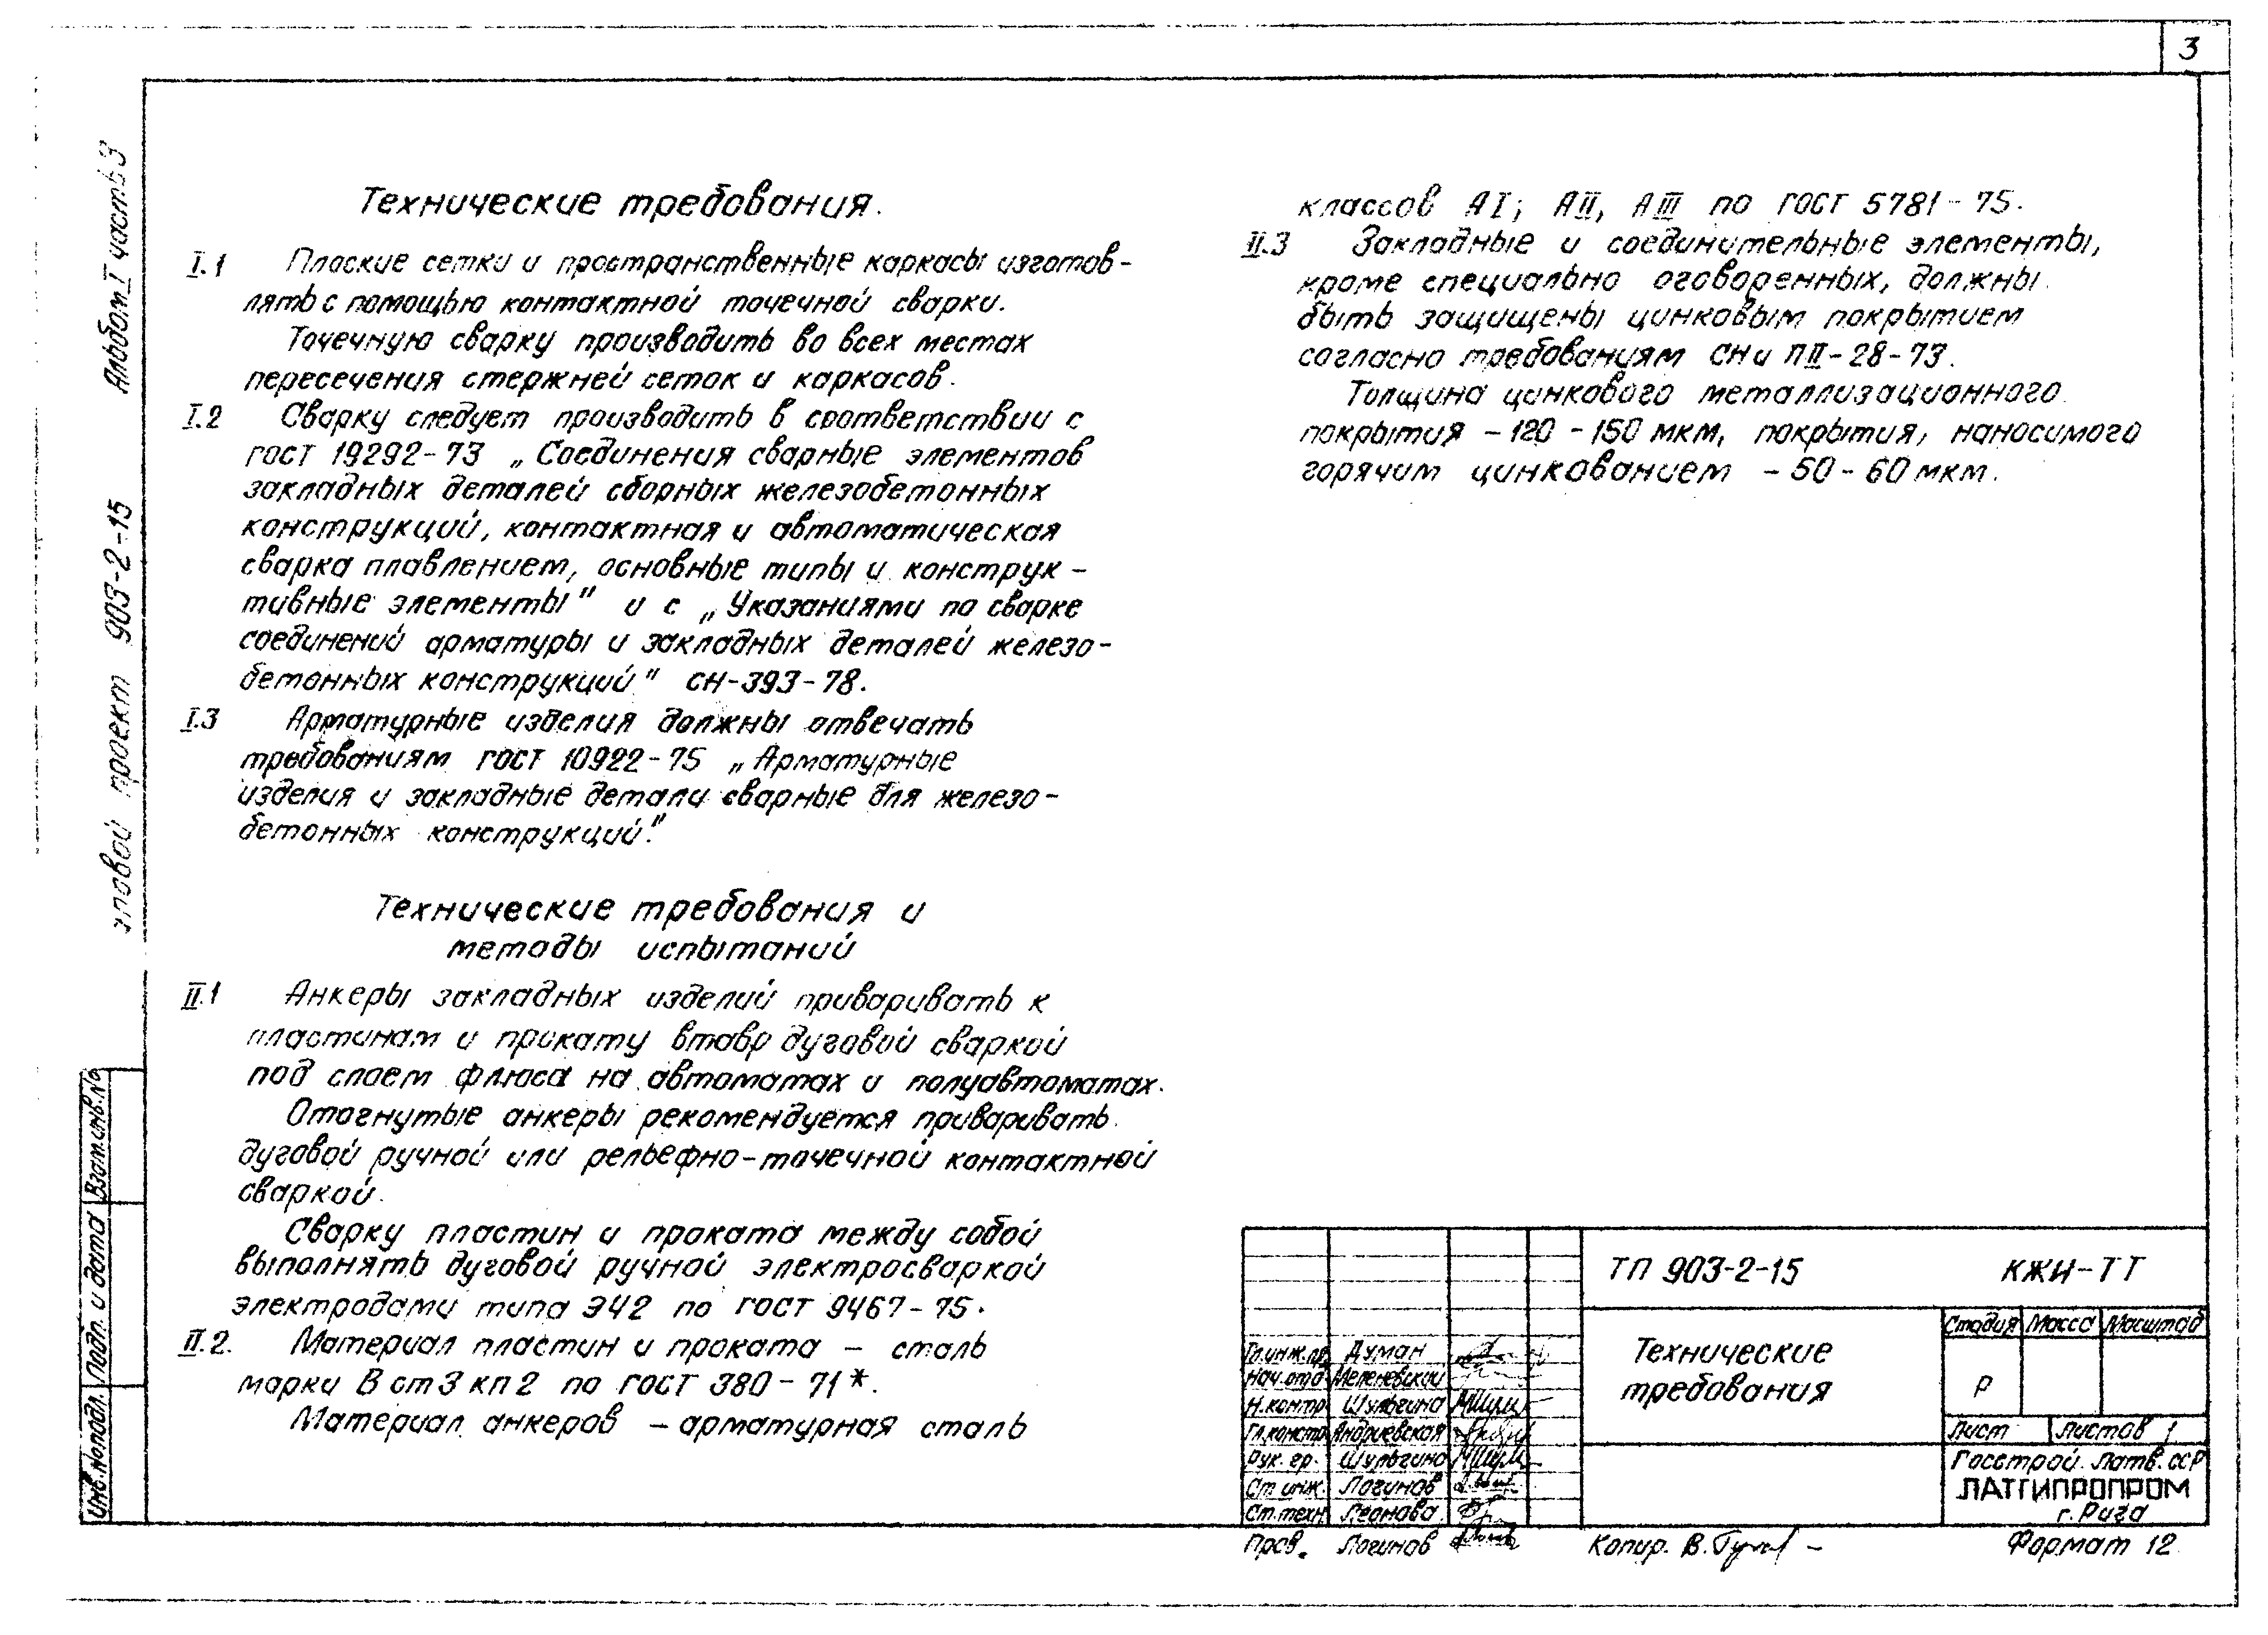 3
Альбом I часть 3
проект 903-2-15
Технические требования.
I.1 Плоские сетки и пространственные каркасы изготов-
лять с помощью контактной точечной сварки.
Точечную сварку производить во всех местах
пересечения стержней сеток и каркасов.
I.2 Сварку следует производить в соответствии с
ГОСТ 19292-73 „Соединения сварные элементов
закладных деталей сборных железобетонных
конструкций, контактная и автоматическая
сварка плавлением, основные типы и конструк-
тивные элементы" и с „Указаниями по сварке
соединений арматуры и закладных деталей железо-
бетонных конструкций" СН-393-78.
I.3 Арматурные изделия должны отвечать
требованиям ГОСТ 10922-75 „Арматурные
изделия и закладные детали сварные для железо-
бетонных конструкций".
Технические требования и
методы испытаний
II.1 Анкеры закладных изделий приваривать к
пластинам и прокату втавр дуговой сваркой
под слоем флюса на автоматах и полуавтоматах.
Отогнутые анкеры рекомендуется приваривать
дуговой ручной или рельефно-точечной контактной
сваркой.
Сварку пластин и проката между собой
выполнять дуговой ручной электросваркой
электродами типа Э42 по ГОСТ 9467-75.
II.2. Материал пластин и проката – сталь
марки В ст 3 кп 2 по ГОСТ 380-71*.
Материал анкеров – арматурная сталь
классов АI; АII, АIII по ГОСТ 5781-75.
II.3 Закладные и соединительные элементы,
кроме специально оговоренных, должны
быть защищены цинковым покрытием
согласно требованиям СНиП II-28-73.
Толщина цинкового металлизационного
покрытия – 120-150 мкм, покрытия, наносимого
горячим цинкованием – 50-60 мкм.
Взам.инв.№
Подп. и дата
Инв.№подл.
ТП 903-2-15 КЖИ-ТТ
Технические
требования
Стадия Масса Масштаб
Р
Лист Листов 1
Госстрой Латв. ССР
ЛАТГИПРОПРОМ
г. Рига
Гл.инж.пр. Думан
Нач.отд Меленевский
Н.контр. Шульгина
Гл.констр. Андриевская
Рук. гр. Шульгина
Ст.инж. Логинов
Ст.техн. Леонова
Пров. Логинов
Копир. В.
Формат 12